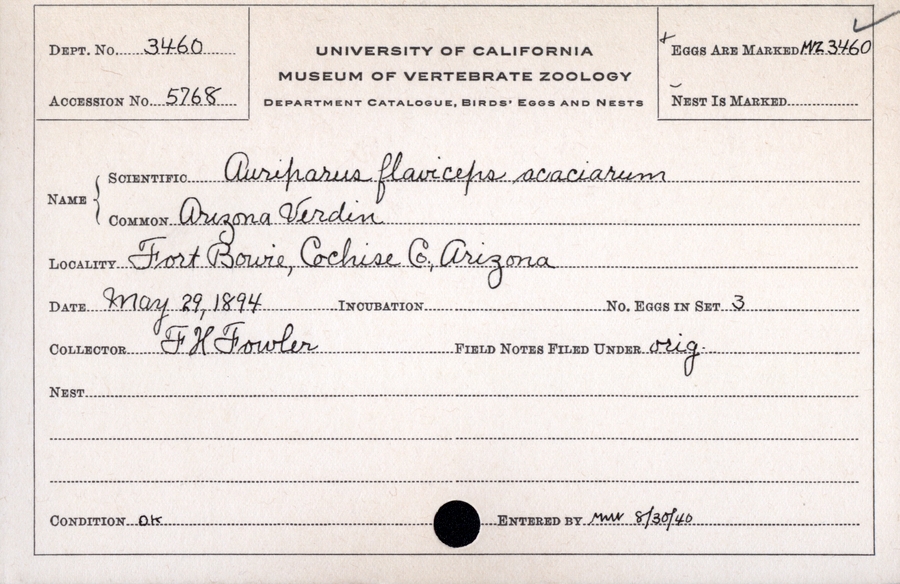 Dept. No. 3460
Accession No. 5768
UNIVERSITY OF CALIFORNIA
MUSEUM OF VERTEBRATE ZOOLOGY
Department Catalogue, Birds' Eggs and Nests
Eggs Are Marked MVZ 3460
Nest Is Marked
Name
Scientific Auriparus flaviceps acaciarum
Common Arizona Verdin
Locality Fort Bowie, Cochise Co., Arizona
Date May 29, 1894 Incubation No. Eggs in Set 3
Collector F H Fowler Field Notes Filed Under orig.
Nest
Condition OK Entered by 8/30/40